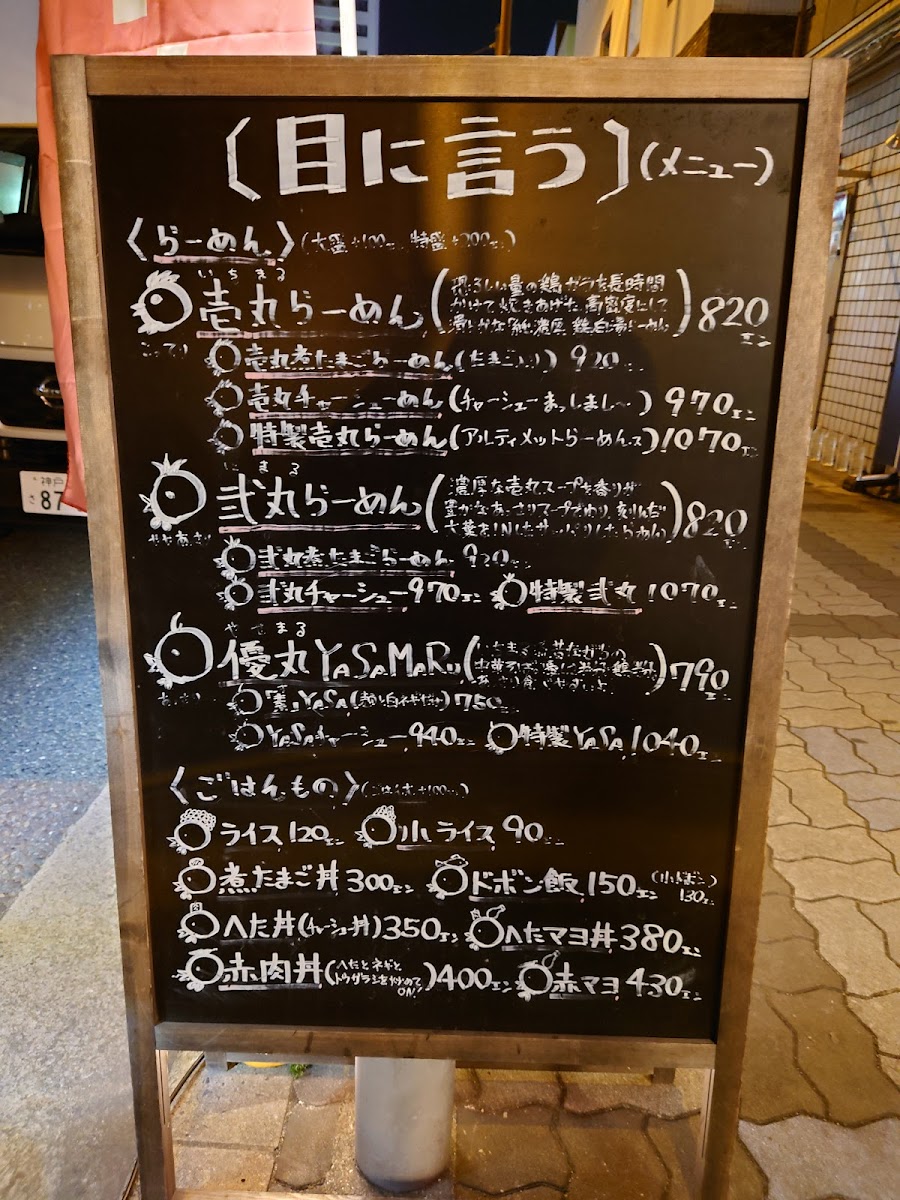 〔目に言う〕(メニュー)
〈らーめん〉(大盛+100エン 特盛+200エン)
いちまる
壱丸らーめん(恐ろしい量の鶏ガラを長時間
かけて炊きあげた、高密度にして
滑らかな「純濃厚」鶏白湯らーめん)820エン
こってり
壱丸煮たまごらーめん(たまご入り) 920エン
壱丸チャーシューめん(チャーシューまっしまし〜) 970エン
特製壱丸らーめん(アルティメットらーめんっス)1070エン
にまる
弐丸らーめん(濃厚な壱丸スープを香りが
豊かなあっさりスープでわり、刻んだ
大葉をINしたサッパリしたらめん)820エン
ややあっさり
弐丸煮たまごらーめん 920エン
弐丸チャーシュー 970エン 特製弐丸 1070エン
やさまる
優丸YaSaMaRu(昔ながらの
中華そば)790エン
あっさり
YaSa(麺と白ネギだけ)750エン
YaSaチャーシュー 940エン 特製YaSa 1040エン
〈ごはんもの〉(+100エン)
ライス 120エン 小ライス 90エン
煮たまご丼 300エン ドボン飯 150エン(小ドボン)
130エン
へた丼(チャーシュー丼)350エン へたマヨ丼 380エン
赤肉丼(へたとネギと
トウガラシを炒めて
ON!)400エン 赤マヨ 430エン
神戸
さ 87